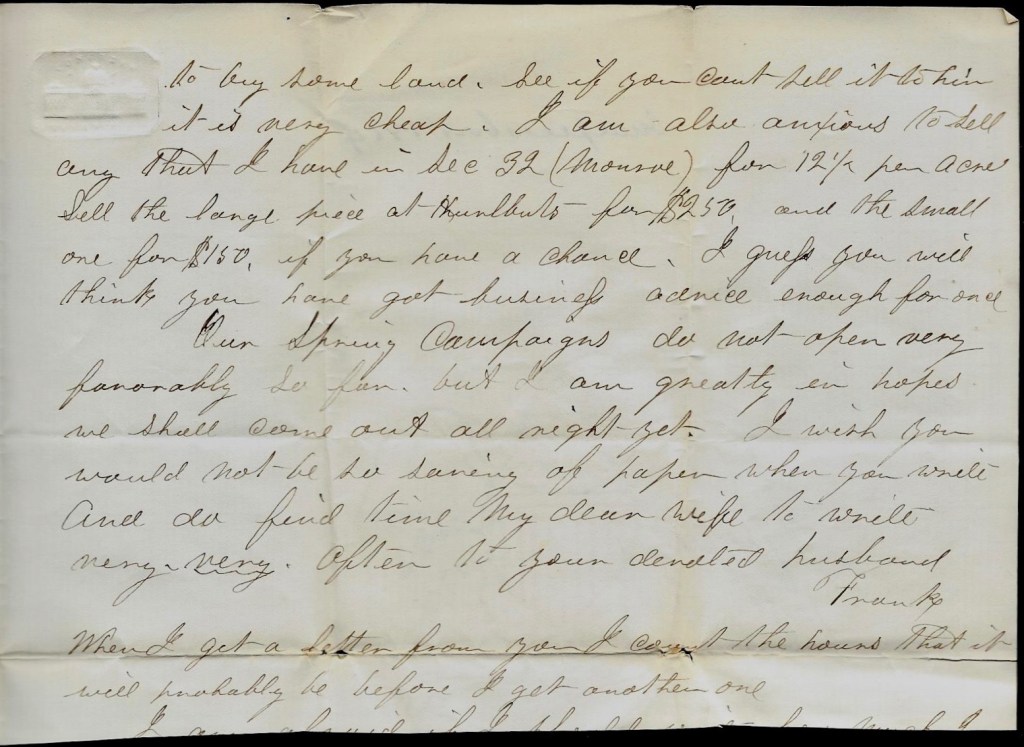 to buy some land. See if you cant sell it to him
it is very cheap. I am also anxious to sell
any that I have in Sec 32 (Monroe) for 12 1/2 per acre
Sell the large piece at Hurlbuts for $250, and the small
one for $150, if you have a chance. I guess you will
think you have got business advice enough for once
Our Spring Campaigns do not open very
favorably so far. but I am greatly in hopes
we shall come out all right yet. I wish you
would not be so saving of paper when you write
And do find time My dear wife to write
very, very. often to your devoted husband
Frank
When I get a letter from you I count the hours that it
will probably be before I get another one
I am afraid if I